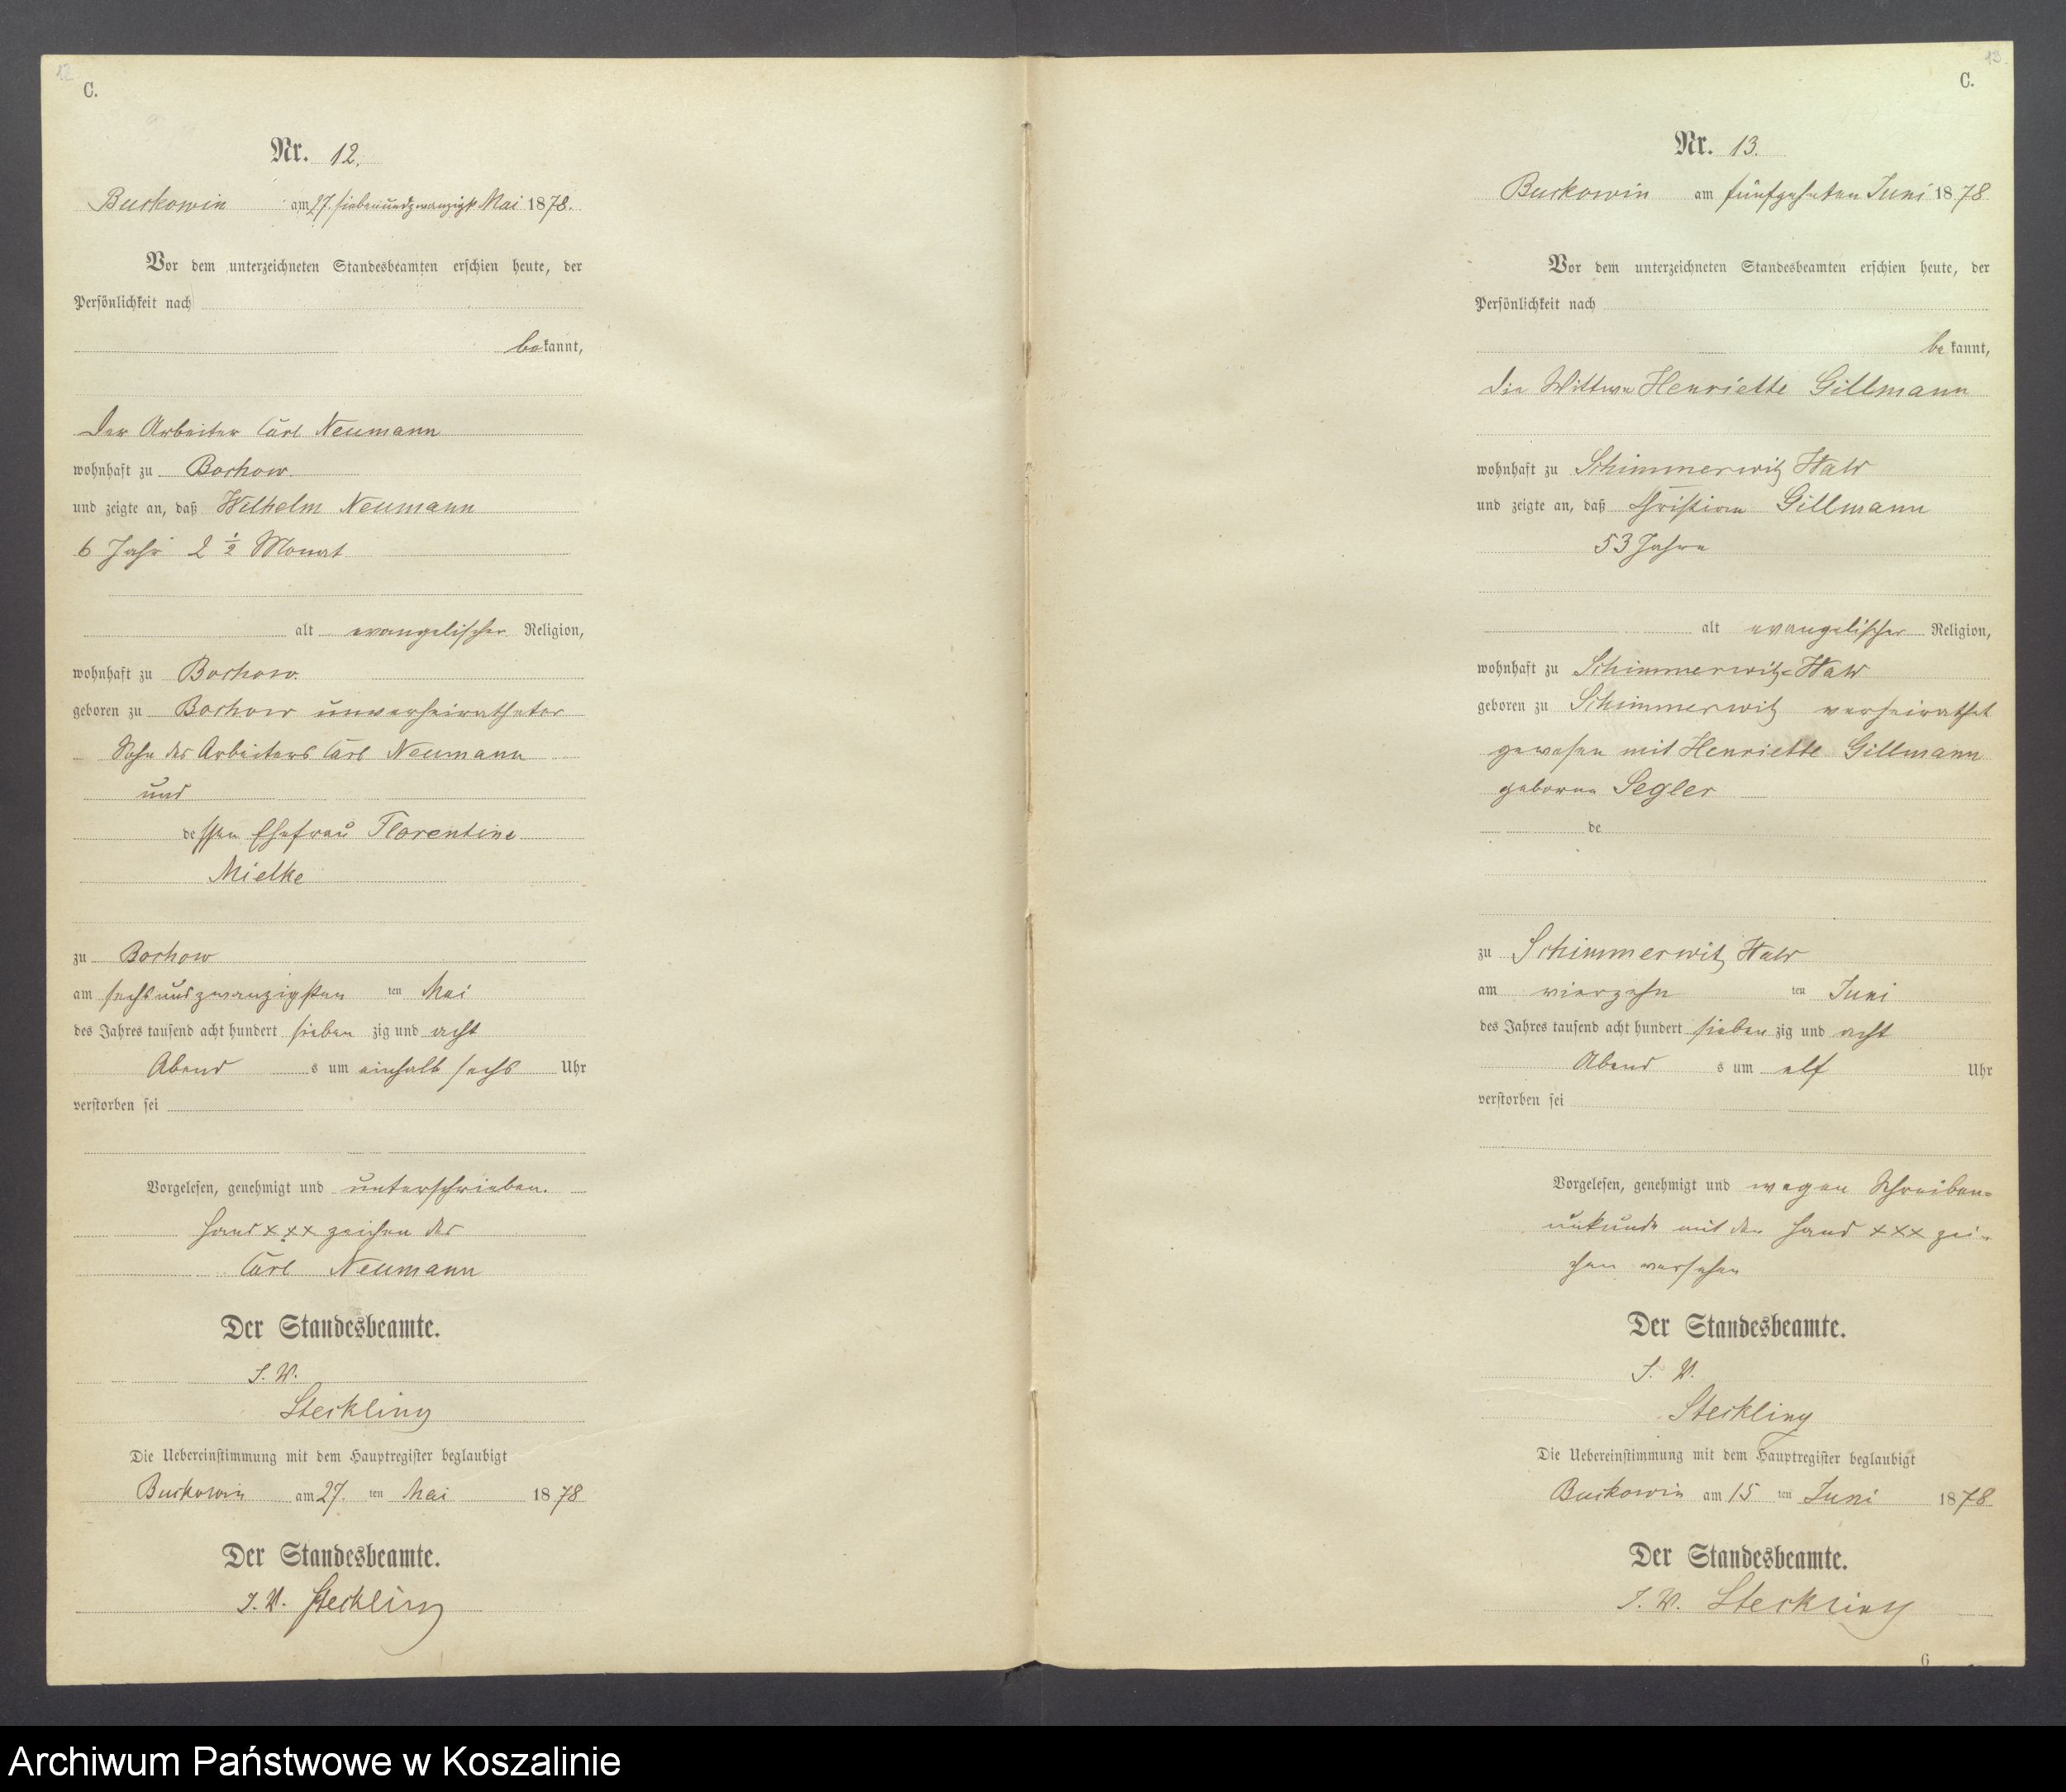 12
C.
Nr. 12.
Buckowin am 27. siebenundzwanzigst Mai 1878.
Vor dem unterzeichneten Standesbeamten erschien heute, der
Persönlichkeit nach
bekannt,
Der Arbeiter Carl Neumann
wohnhaft zu Bochow
und zeigte an, daß Wilhelm Neumann
6 Jahr 2 1/2 Monat
alt evangelischer Religion,
wohnhaft zu Bochow
geboren zu Bochow unverheiratheter
Sohn des Arbeiters Carl Neumann
und
dessen Ehefrau Florentine
Mielke
zu Bochow
am sechsundzwanzigsten ten Mai
des Jahres tausend acht hundert siebenzig und acht
Abends um einhalb sechs Uhr
verstorben sei
Vorgelesen, genehmigt und unterschrieben.
Hand xxx zeichen des
Carl Neumann
Der Standesbeamte.
J. V.
Steckling
Die Uebereinstimmung mit dem Hauptregister beglaubigt
Buckowin am 27. ten Mai 1878
Der Standesbeamte.
J. V. Steckling
13.
C.
Nr. 13.
Buckowin am fünfzehnten Juni 1878
Vor dem unterzeichneten Standesbeamten erschien heute, der
Persönlichkeit nach
bekannt,
die Wittwe Henriette Gillmann
wohnhaft zu Schimmerwitz
und zeigte an, daß Christian Gillmann
53 Jahre
alt evangelischer Religion,
wohnhaft zu Schimmerwitz
geboren zu Schimmerwitz verheirathet
gewesen mit Henriette Gillmann
geborne Segler
de
zu Schimmerwitz
am vierzehn ten Juni
des Jahres tausend acht hundert siebenzig und acht
Abends um elf Uhr
verstorben sei
Vorgelesen, genehmigt und wegen Schreiben-
unkunde mit den Hand xxx zei-
chen versehen
Der Standesbeamte.
J. V.
Steckling
Die Uebereinstimmung mit dem Hauptregister beglaubigt
Buckowin am 15 ten Juni 1878
Der Standesbeamte.
J. V. Steckling
6
Archiwum Państwowe w Koszalinie